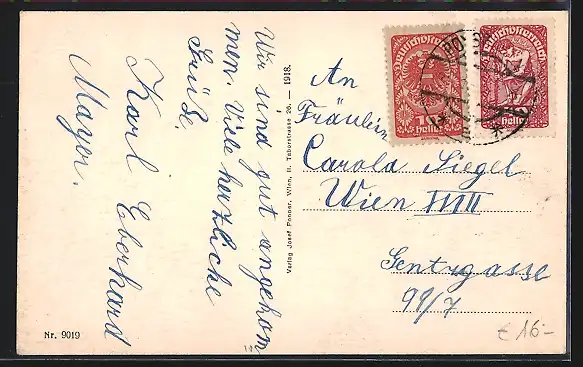 Wir sind gut angekom
men. Viele herzliche
Grüße.
Karl Eberhard
Mayer.
Verlag Josef Popper, Wien, II. Taborstrasse 26. — 1918.
Nr. 9019
An
Fräulein
Carola Siegel
Wien XVIII
Gentzgasse
99/7
Deutschösterreich
10
heller
Deutschösterreich
heller
€ 16-